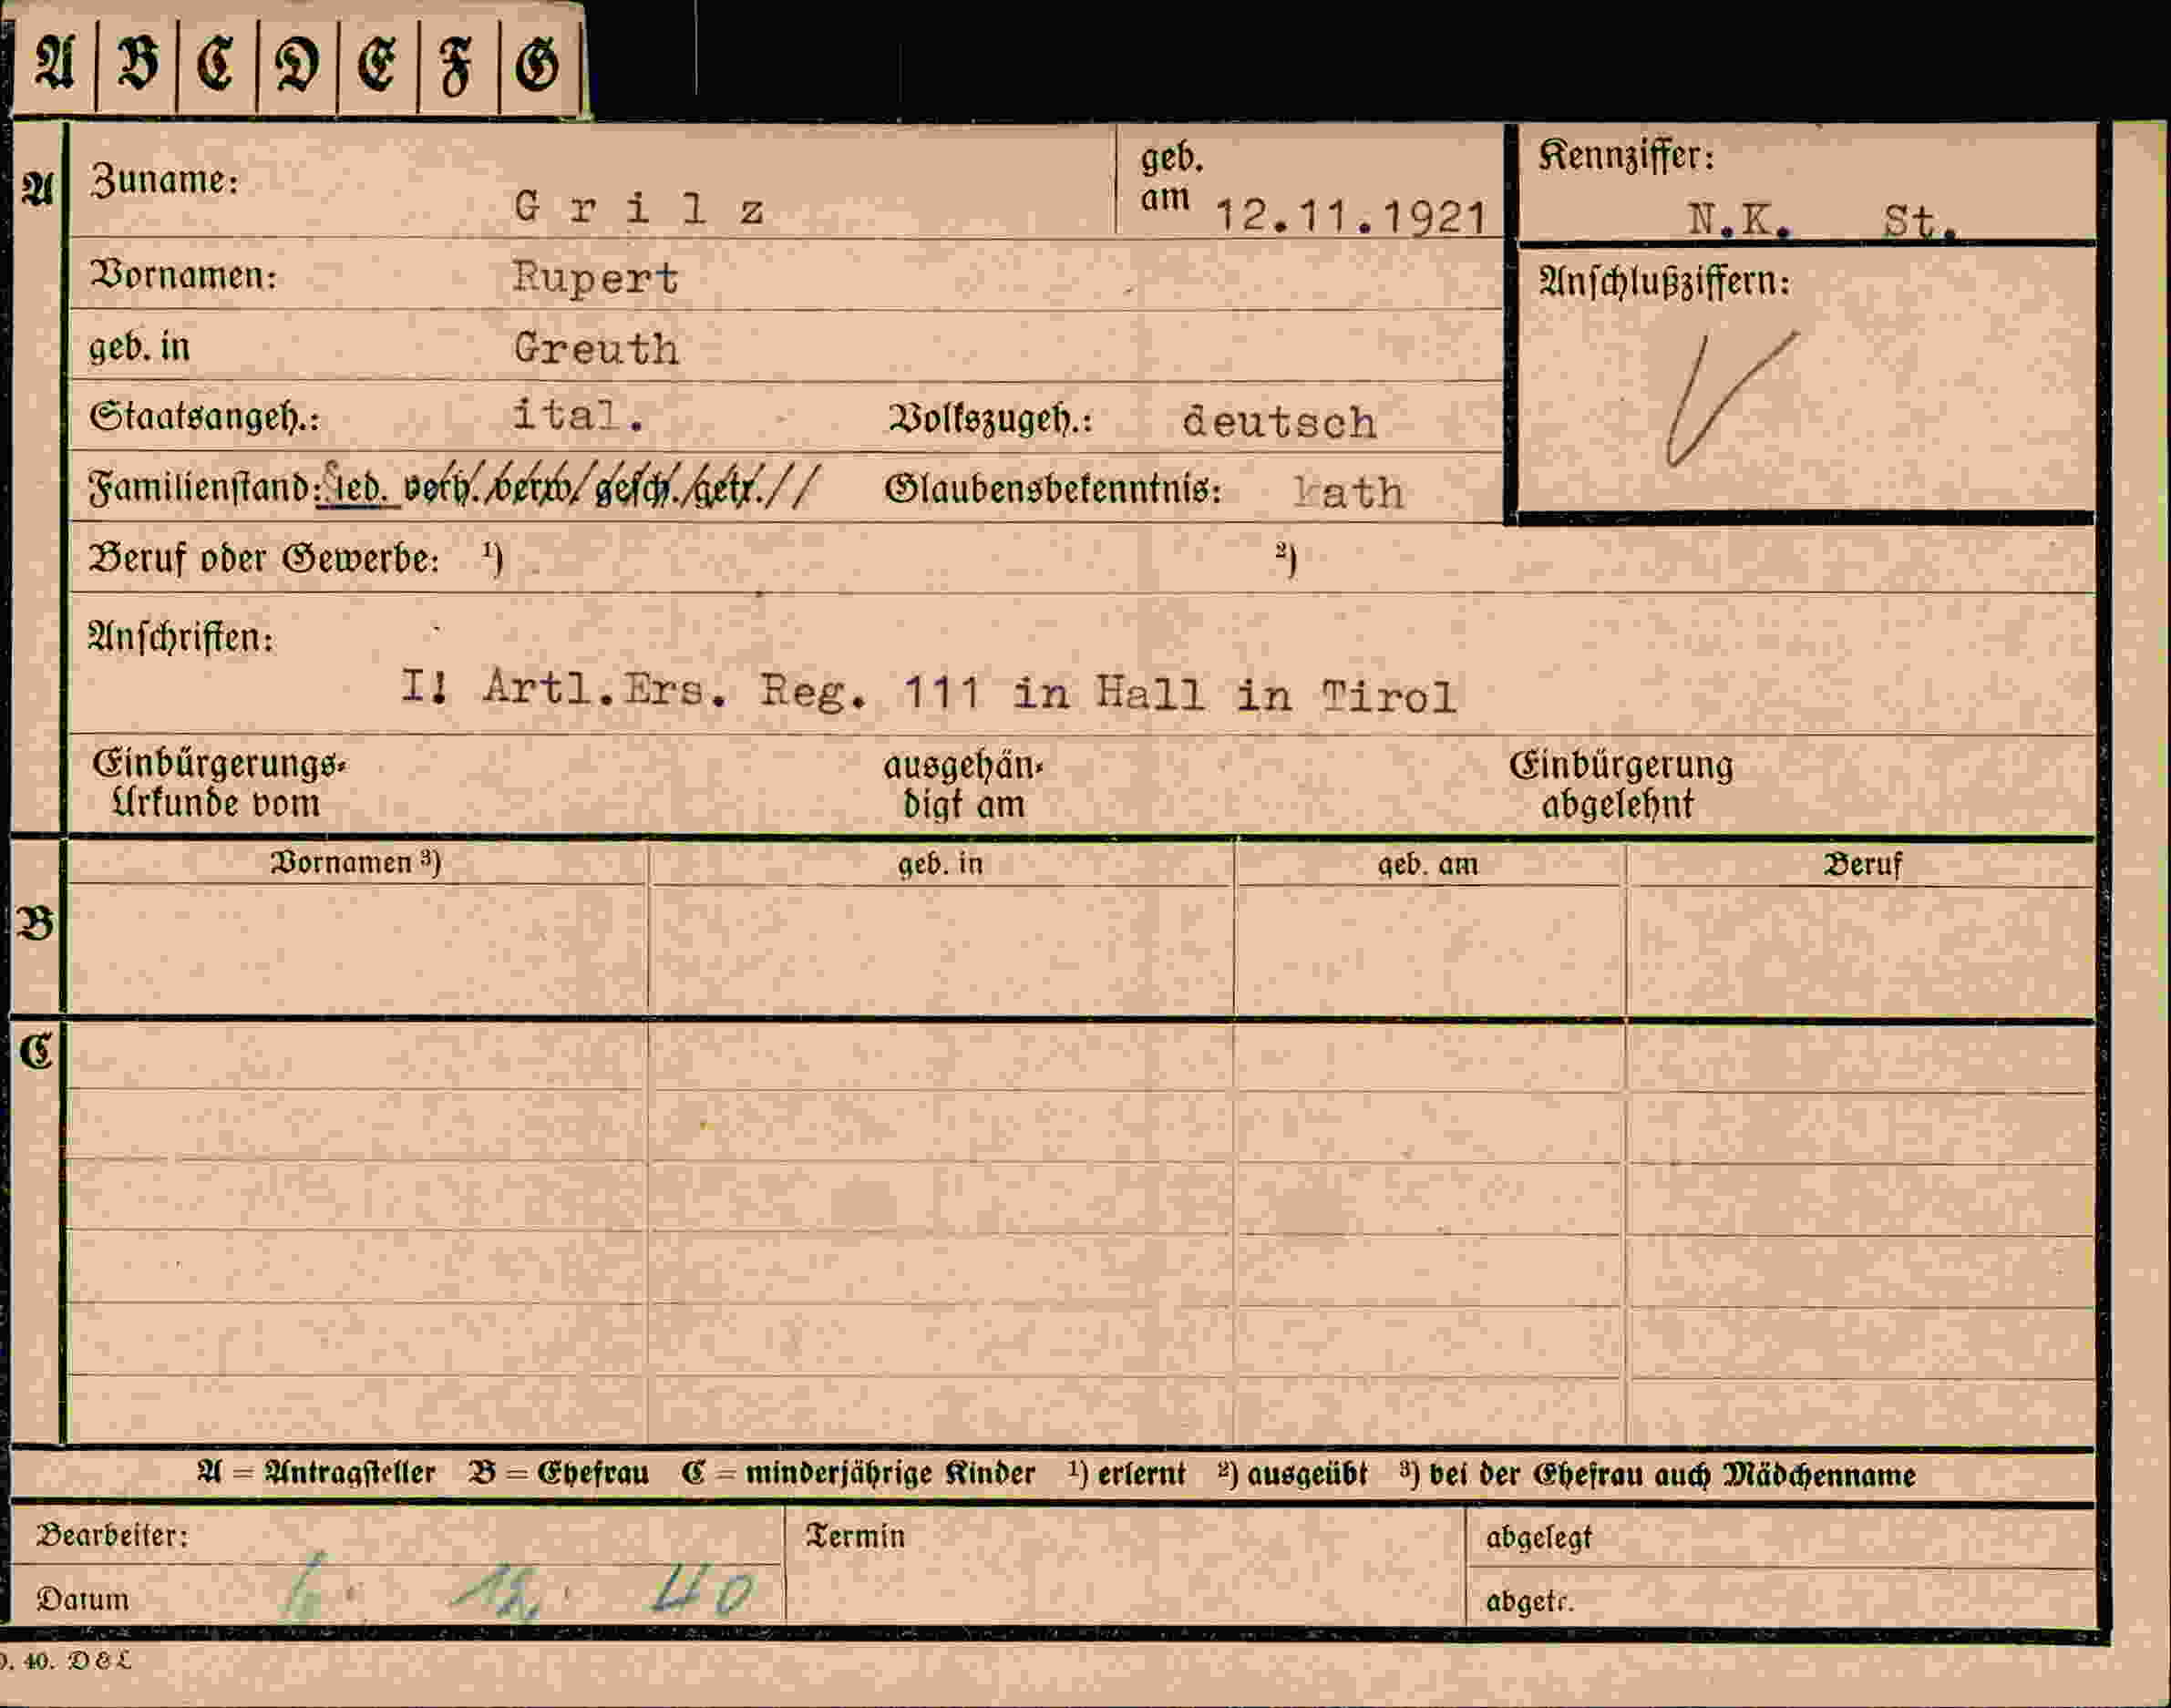 A B C D E F G
A Zuname: Grilz geb. am 12.11.1921 Kennziffer: N.K. St.
Vornamen: Rupert Anschlußziffern:
geb. in Greuth
Staatsangeh.: ital. Volkszugeh.: deutsch
Familienstand: led. verh./verw/gesch./getr.// Glaubensbekenntnis: kath
Beruf oder Gewerbe: ¹) ²)
Anschriften:
I! Artl.Ers. Reg. 111 in Hall in Tirol
Einbürgerungs- ausgehän- Einbürgerung
Urkunde vom digt am abgelehnt
Vornamen ³) geb. in geb. am Beruf
B
C
A = Antragsteller B = Ehefrau C = minderjährige Kinder ¹) erlernt ²) ausgeübt ³) bei der Ehefrau auch Mädchenname
Bearbeiter: Termin abgelegt
Datum 12. 40 abgetr.
40. D & L